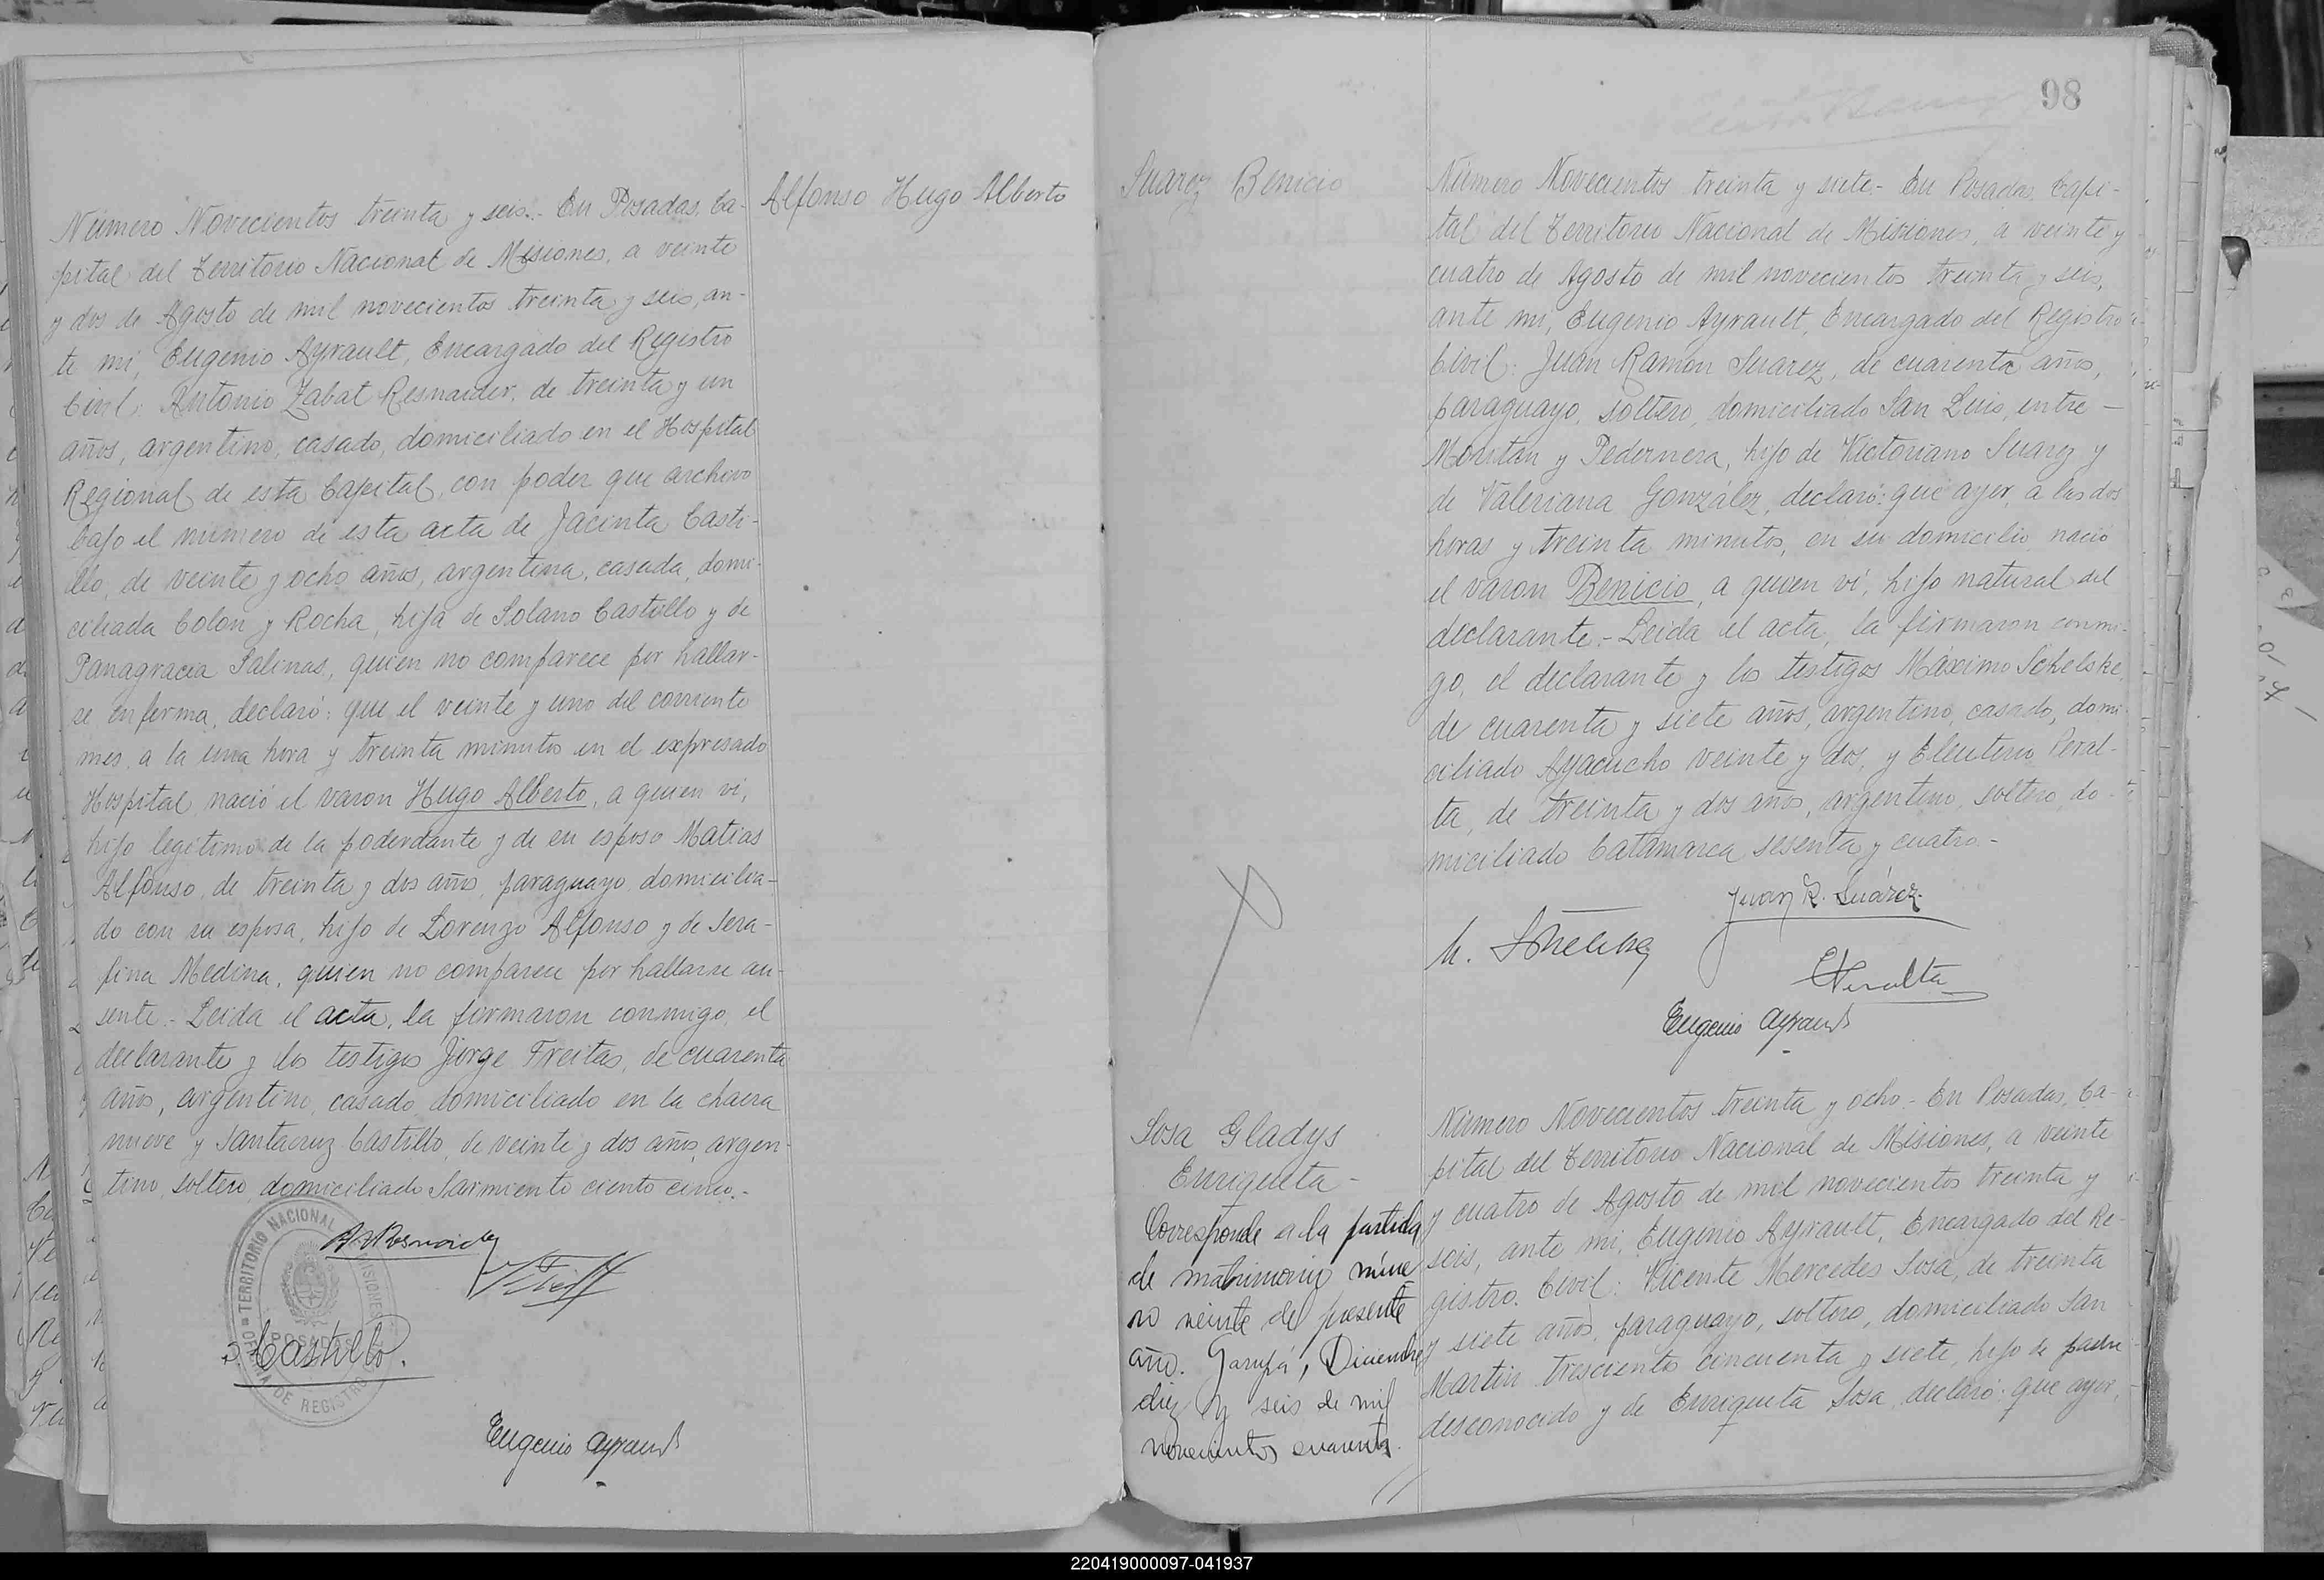 Número Novecientos treinta y seis.- En Posadas, Ca-
pital del Territorio Nacional de Misiones, a veinte
y dos de Agosto de mil novecientos treinta y seis, an-
te mi, Eugenio Ayrault, Encargado del Registro
Civil: Antonio Zabat Resnaider, de treinta y un
años, argentino, casado, domiciliado en el Hospital
Regional de esta Capital, con poder que archivo
bajo el número de esta acta de Jacinta Casti-
llo, de veinte y ocho años, argentina, casada, domi-
ciliada Colon y Rocha, hija de Solano Castillo y de
Panagracia Salinas, quien no comparece por hallar-
se enferma, declaró: que el veinte y uno del corriente
mes, a la una hora y treinta minutos en el expresado
Hospital, nació el varon Hugo Alberto, a quien vi,
hijo legitimo de la poderdante y de su esposo Matias
Alfonso, de treinta y dos años, paraguayo, domicilia-
do con su esposa, hijo de Lorenzo Alfonso y de Sera-
fina Medina, quien no comparece por hallarse au-
sente.- Leida el acta, la firmaron conmigo, el
declarante y los testigos Jorge Freitas, de cuarenta
años, argentino, casado, domiciliado en la chacra
nueve y Santacruz Castillo, de veinte y dos años, argen-
tino, soltero, domiciliado Sarmiento ciento cinco.-
TERRITORIO NACIONAL MISIONES
POSADAS
DE REGISTRO
S. Castillo.
Eugenio Ayrault
Alfonso Hugo Alberto
98
Suarez Benicio
Número Novecientos treinta y siete.- En Posadas, Capi-
tal del Territorio Nacional de Misiones, a veinte y
cuatro de Agosto de mil novecientos treinta y seis,
ante mi, Eugenio Ayrault, Encargado del Registro
Civil: Juan Ramon Suarez, de cuarenta años,
paraguayo, soltero, domiciliado San Luis, entre -
Moritan y Pedernera, hijo de Victoriano Suarez y
de Valeriana González, declaró: que ayer, a las dos
horas y treinta minutos, en su domicilio nació
el varon Benicio, a quien vi, hijo natural del
declarante.- Leida el acta, la firmaron conmi-
go, el declarante y los testigos Máximo Schelske,
de cuarenta y siete años, argentino, casado, domi-
ciliado Ayacucho veinte y dos, y Eleuterio Peral-
ta, de treinta y dos años, argentino, soltero, do-
miciliado Catamarca sesenta y cuatro.-
Juan R. Suárez
E Peralta
Eugenio Ayrault
Sosa Gladys
Enriqueta -
Corresponde a la partida
de matrimonio núme
ro veinte del presente
año. Garupá, Diciembre
diez y seis de mil
novecientos cuarenta.
Número Novecientos treinta y ocho.- En Posadas, Ca-
pital del Territorio Nacional de Misiones, a veinte
y cuatro de Agosto de mil novecientos treinta y
seis, ante mi, Eugenio Ayrault, Encargado del Re-
gistro Civil: Vicente Mercedes Sosa, de treinta
y siete años, paraguayo, soltero, domiciliado San
Martin trescientos cincuenta y siete, hijo de padre
desconocido y de Enriqueta Sosa, declaró: que ayer,
220419000097-041937